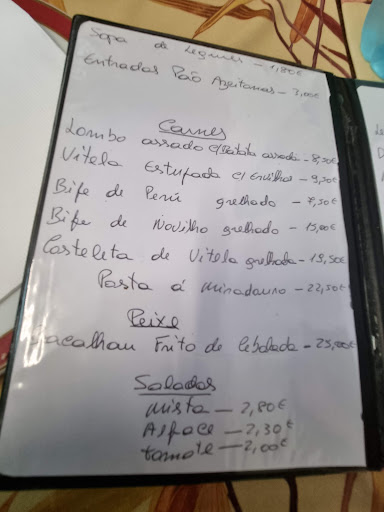 Sopa de Legumes - 1,80€
Entradas Pão Azeitonas - 3,00€
Carnes
Lombo assado c/Batata assada - 8,50€
Vitela Estufada c/ Ervilhas - 9,50€
Bife de Perú grelhado - 7,50€
Bife de Novilho grelhado - 15,00€
Costeleta de Vitela grelhada - 19,50€
Posta á mirandouro - 22,50€
Peixe
Bacalhau Frito de Cebolada - 25,00€
Saladas
mista - 2,80€
Alface - 2,30€
tomate - 2,00€